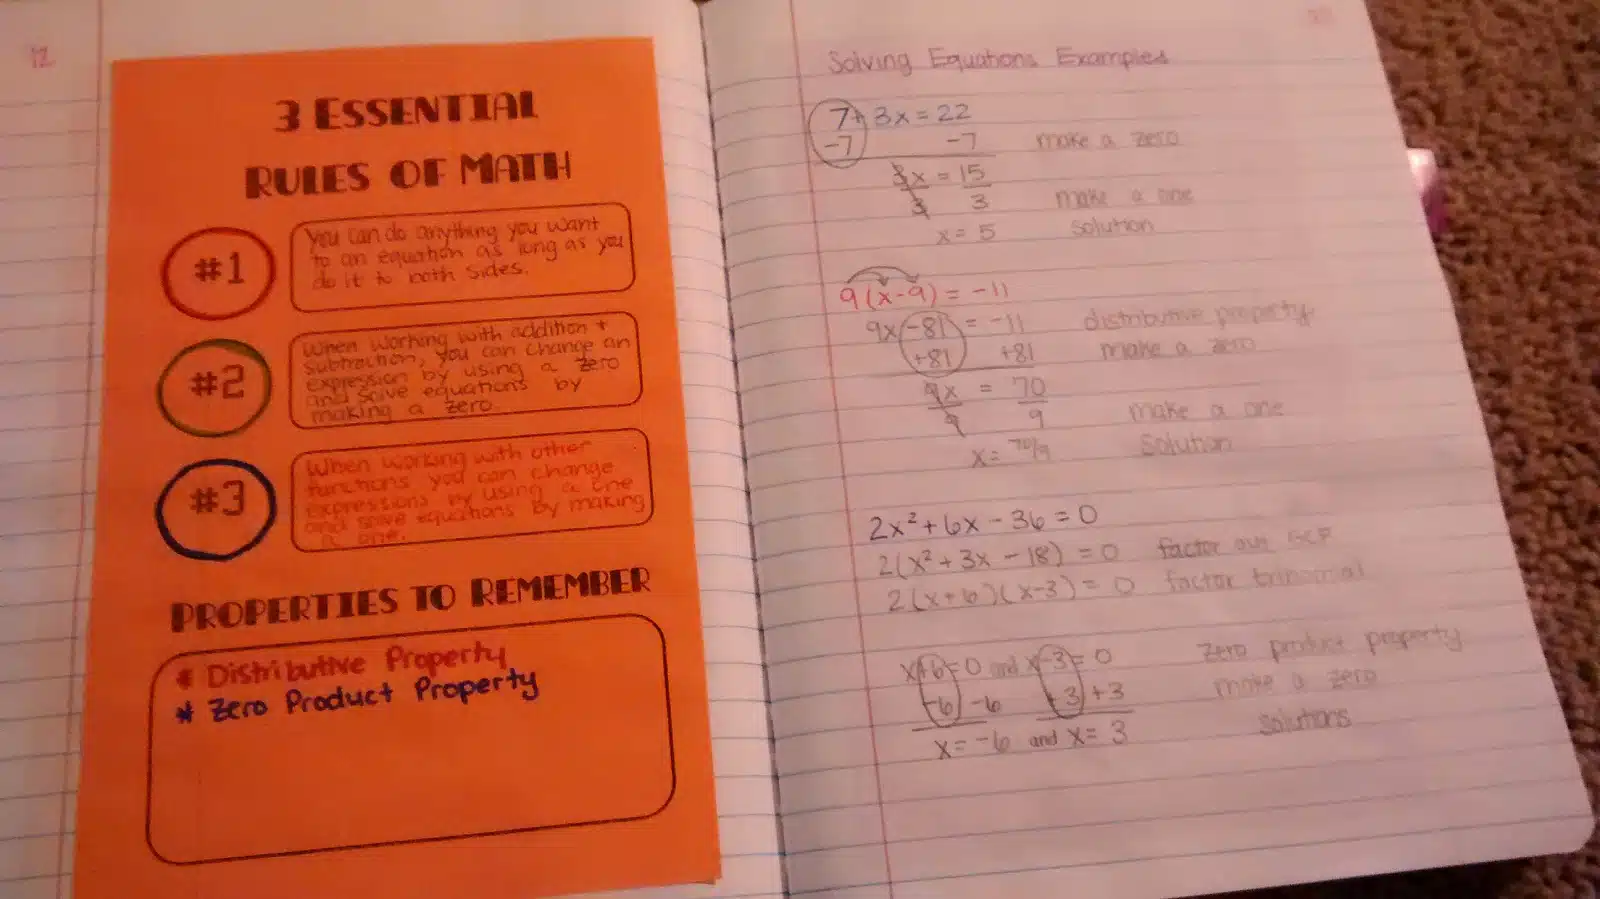 12
3 ESSENTIAL
RULES OF MATH
#1
You can do anything you want
to an equation as long as you
do it to both sides.
#2
When working with addition +
subtraction, you can change an
expression by using a zero
and solve equations by
making a zero.
#3
When working with other
functions you can change
expressions by using a one
and solve equations by making
a one.
PROPERTIES TO REMEMBER
* Distributive Property
* Zero Product Property
Solving Equations Examples
7+3x=22
-7 -7 make a zero
3x = 15
3 3 make a one
x=5 solution
9(x-9)=-11
9x-81 = -11 distributive property
+81 +81 make a zero
9x = 70
9 9 make a one
x= 70/9 solution
2x²+6x-36=0
2(x²+3x-18)=0 factor out GCF
2(x+6)(x-3)=0 factor trinomial
x+6=0 and x-3=0 Zero product property
-6 -6 +3 +3 make a zero
x=-6 and x=3 solutions